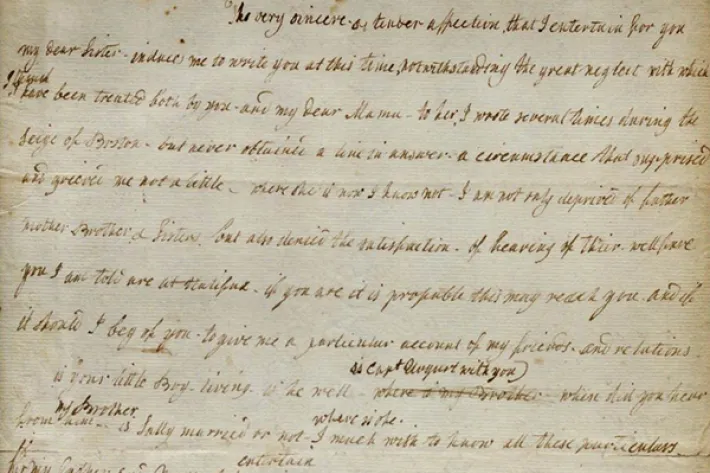 The very sincere & tender affection, that I entertain for you
my dear Sister - induces me to write you at this time, notwithstanding the great neglect with which
I have been treated both by you - and my dear Mama - to her, I wrote several times during the
Seige of Boston - but never obtained a line in answer - a circumstance that surprised
and greived me not a little - where she is now I know not - I am not only deprived of father
mother Brother & Sisters, but also denied the satisfaction - of hearing of their wellfare
you I am told are at Halifax - if you are it is propable this may reach you - and if
it should I beg of you - to give me a particular account of my friends - and relations
is Capt Urquart with you
is your little Boy - living - is he well - where is my Brother - when did you hear
my Brother where is he
from - is Sally married or not - I much wish to know all these particulars
entertain